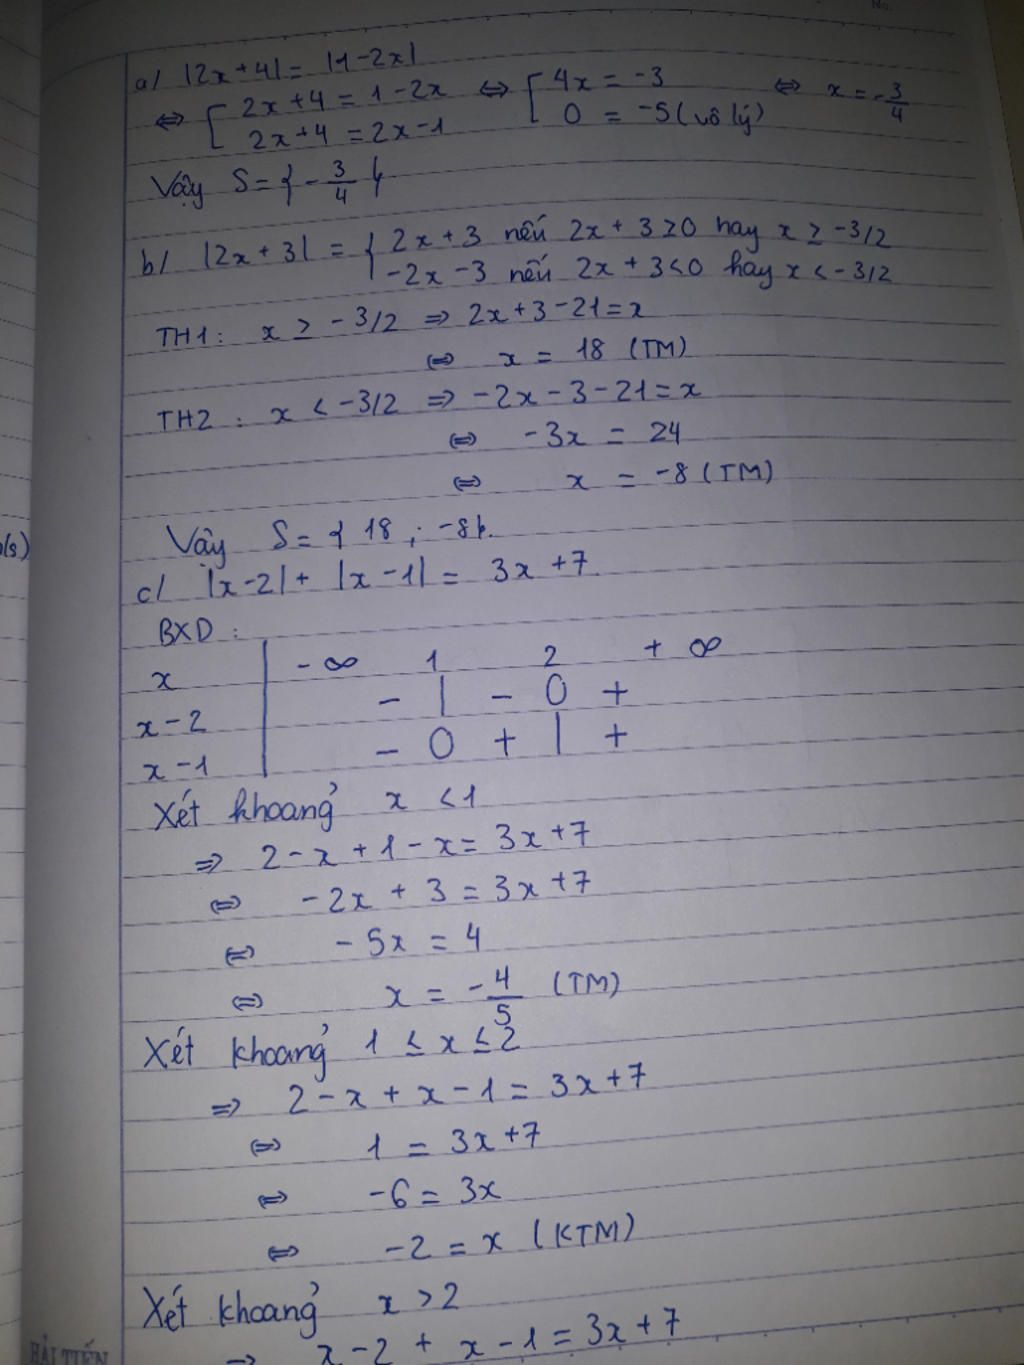 No.
a/ |2x+4| = |1-2x|
⇔ [ 2x+4 = 1-2x ⇔ [ 4x = -3 ⇔ x = -3/4
2x+4 = 2x-1 0 = -5 (vô lý)
Vậy S = { -3/4 }
b/ |2x+3| = { 2x+3 nếu 2x+3 ≥ 0 hay x ≥ -3/2
-2x-3 nếu 2x+3 < 0 hay x < -3/2
TH1: x ≥ -3/2 ⇒ 2x+3-21 = x
⇔ x = 18 (TM)
TH2: x < -3/2 ⇒ -2x-3-21 = x
⇔ -3x = 24
⇔ x = -8 (TM)
Vậy S = { 18 ; -8 }.
c/ |x-2| + |x-1| = 3x+7
BXD:
x | -∞ 1 2 +∞
x-2 | - | - 0 +
x-1 | - 0 + | +
Xét khoảng x < 1
⇒ 2-x+1-x = 3x+7
⇔ -2x+3 = 3x+7
⇔ -5x = 4
⇔ x = -4/5 (TM)
Xét khoảng 1 ≤ x ≤ 2
⇒ 2-x+x-1 = 3x+7
⇔ 1 = 3x+7
⇔ -6 = 3x
⇔ -2 = x (KTM)
Xét khoảng x > 2
⇒ x-2+x-1 = 3x+7
HẢI TIẾN